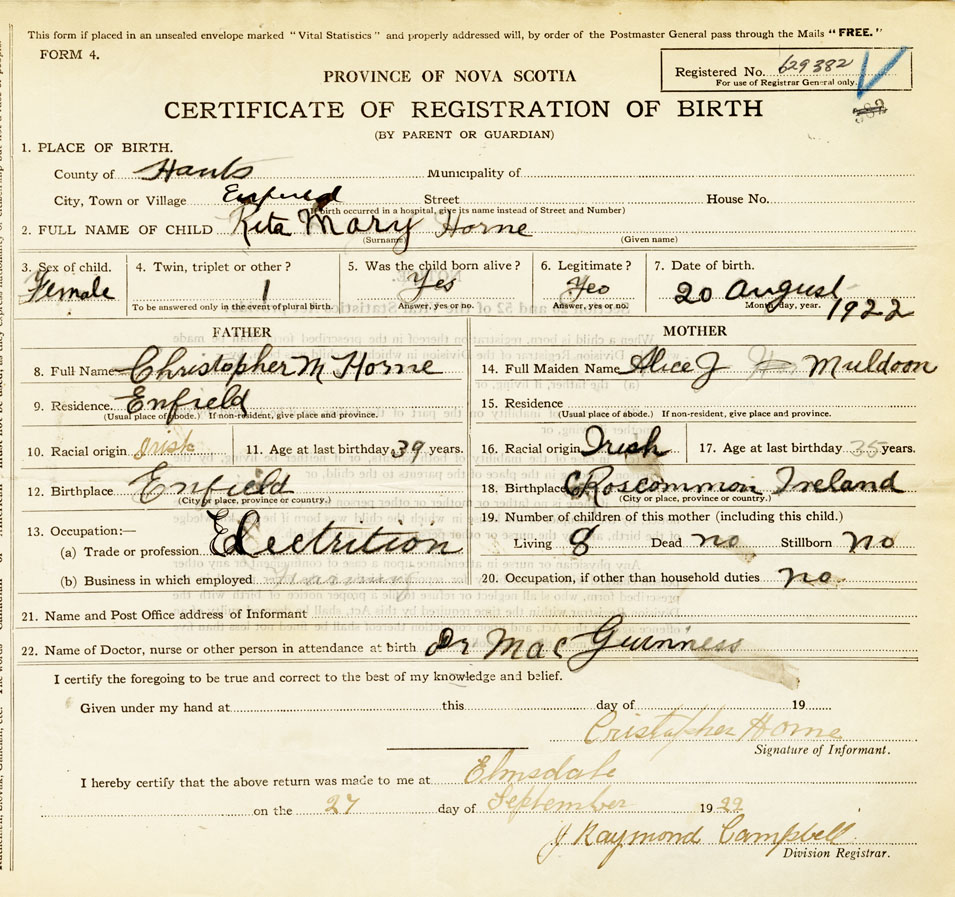 This form if placed in an unsealed envelope marked "Vital Statistics" and properly addressed will, by order of the Postmaster General pass through the Mails "FREE."
FORM 4.
Registered No. 629382
For use of Registrar General only.
382
PROVINCE OF NOVA SCOTIA
CERTIFICATE OF REGISTRATION OF BIRTH
(BY PARENT OR GUARDIAN)
1. PLACE OF BIRTH.
County of Hants Municipality of
City, Town or Village Enfield Street House No.
(If birth occurred in a hospital, give its name instead of Street and Number)
2. FULL NAME OF CHILD Rita Mary Horne
(Surname) (Given name)
3. Sex of child. 4. Twin, triplet or other? 5. Was the child born alive? 6. Legitimate? 7. Date of birth.
Female 1 Yes Yes 20 August 1922
To be answered only in the event of plural birth. Answer, yes or no. Answer, yes or no. Month, day, year.
FATHER MOTHER
8. Full Name Christopher M Horne 14. Full Maiden Name Alice J Muldoon
9. Residence Enfield 15. Residence
(Usual place of abode.) If non-resident, give place and province. (Usual place of abode.) If non-resident, give place and province.
10. Racial origin Irish 11. Age at last birthday 39 years. 16. Racial origin Irish 17. Age at last birthday 35 years.
12. Birthplace Enfield 18. Birthplace Roscommon Ireland
(City or place, province or country.) (City or place, province or country.)
13. Occupation:— 19. Number of children of this mother (including this child.)
(a) Trade or profession Electrition Living 8 Dead no Stillborn No
(b) Business in which employed 20. Occupation, if other than household duties no.
21. Name and Post Office address of Informant
22. Name of Doctor, nurse or other person in attendance at birth Dr MacGuinness
I certify the foregoing to be true and correct to the best of my knowledge and belief.
Given under my hand at this day of 19
Cristopher Horne
Signature of Informant.
I hereby certify that the above return was made to me at Elmsdale
on the 27 day of September 1922
J Raymond Campbell
Division Registrar.